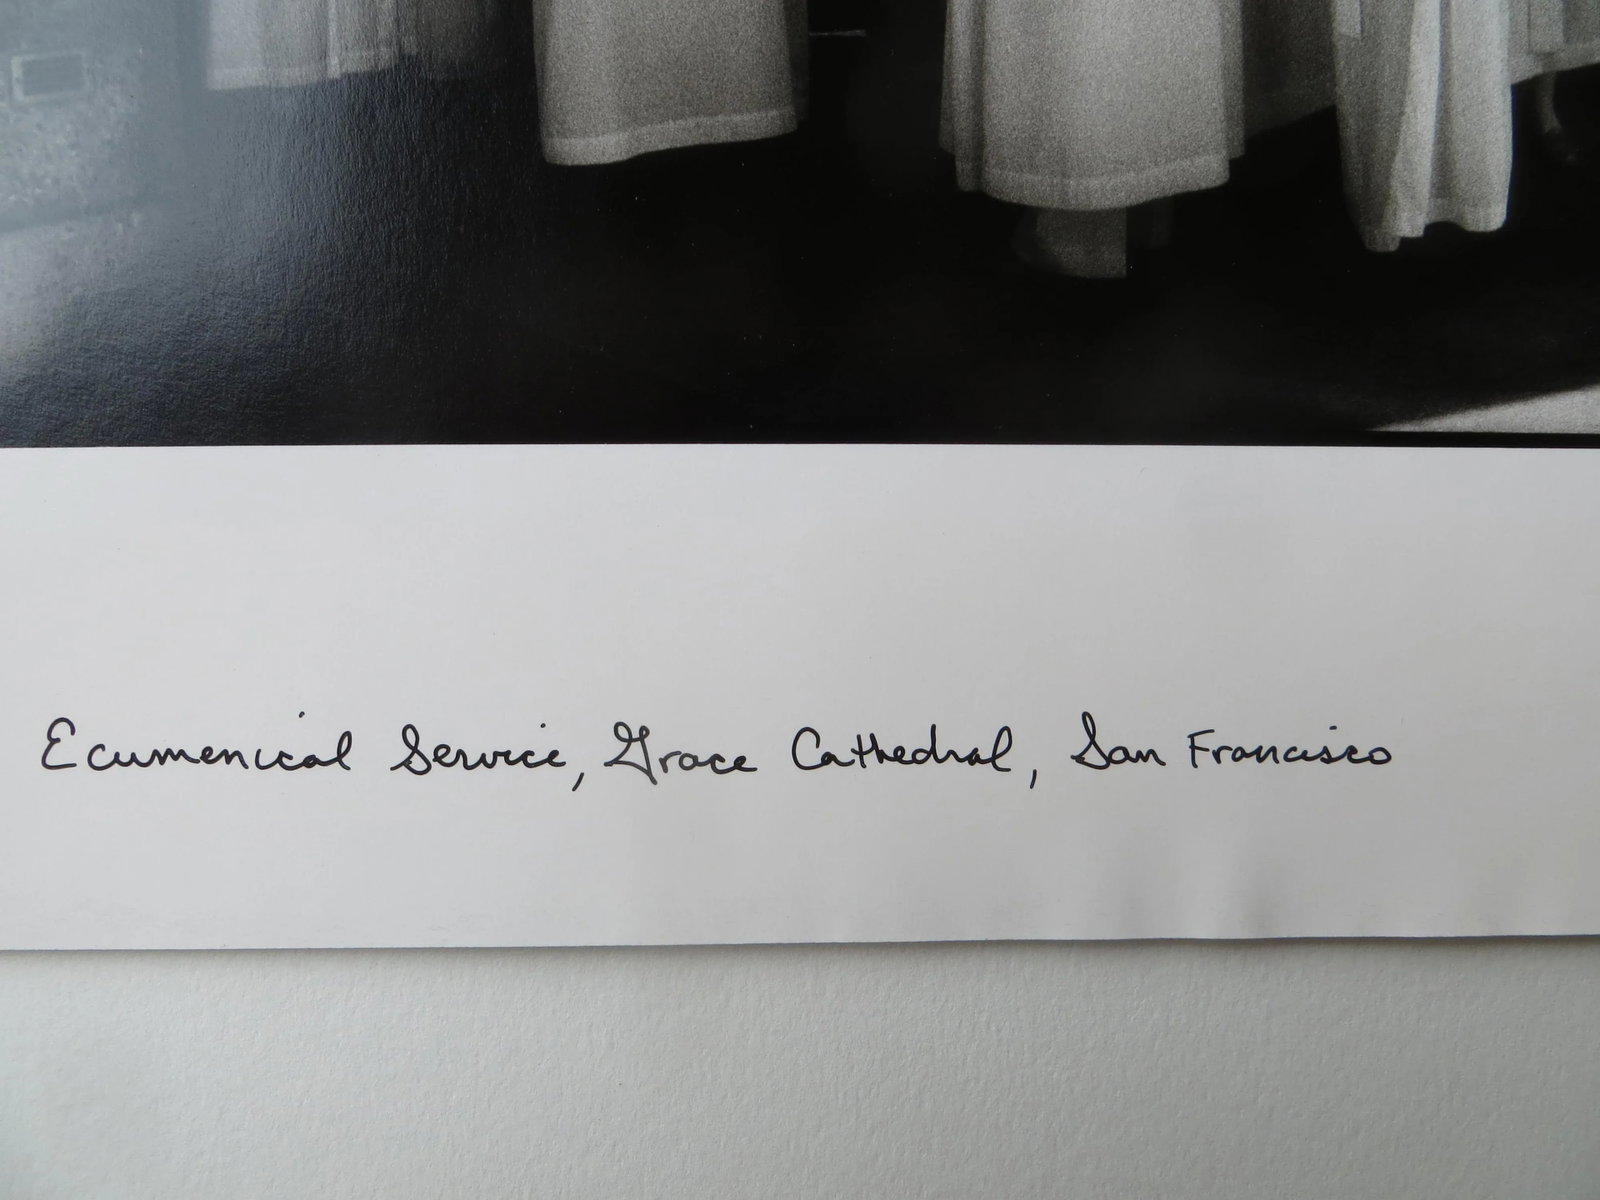 Ecumenical Service, Grace Cathedral, San Francisco